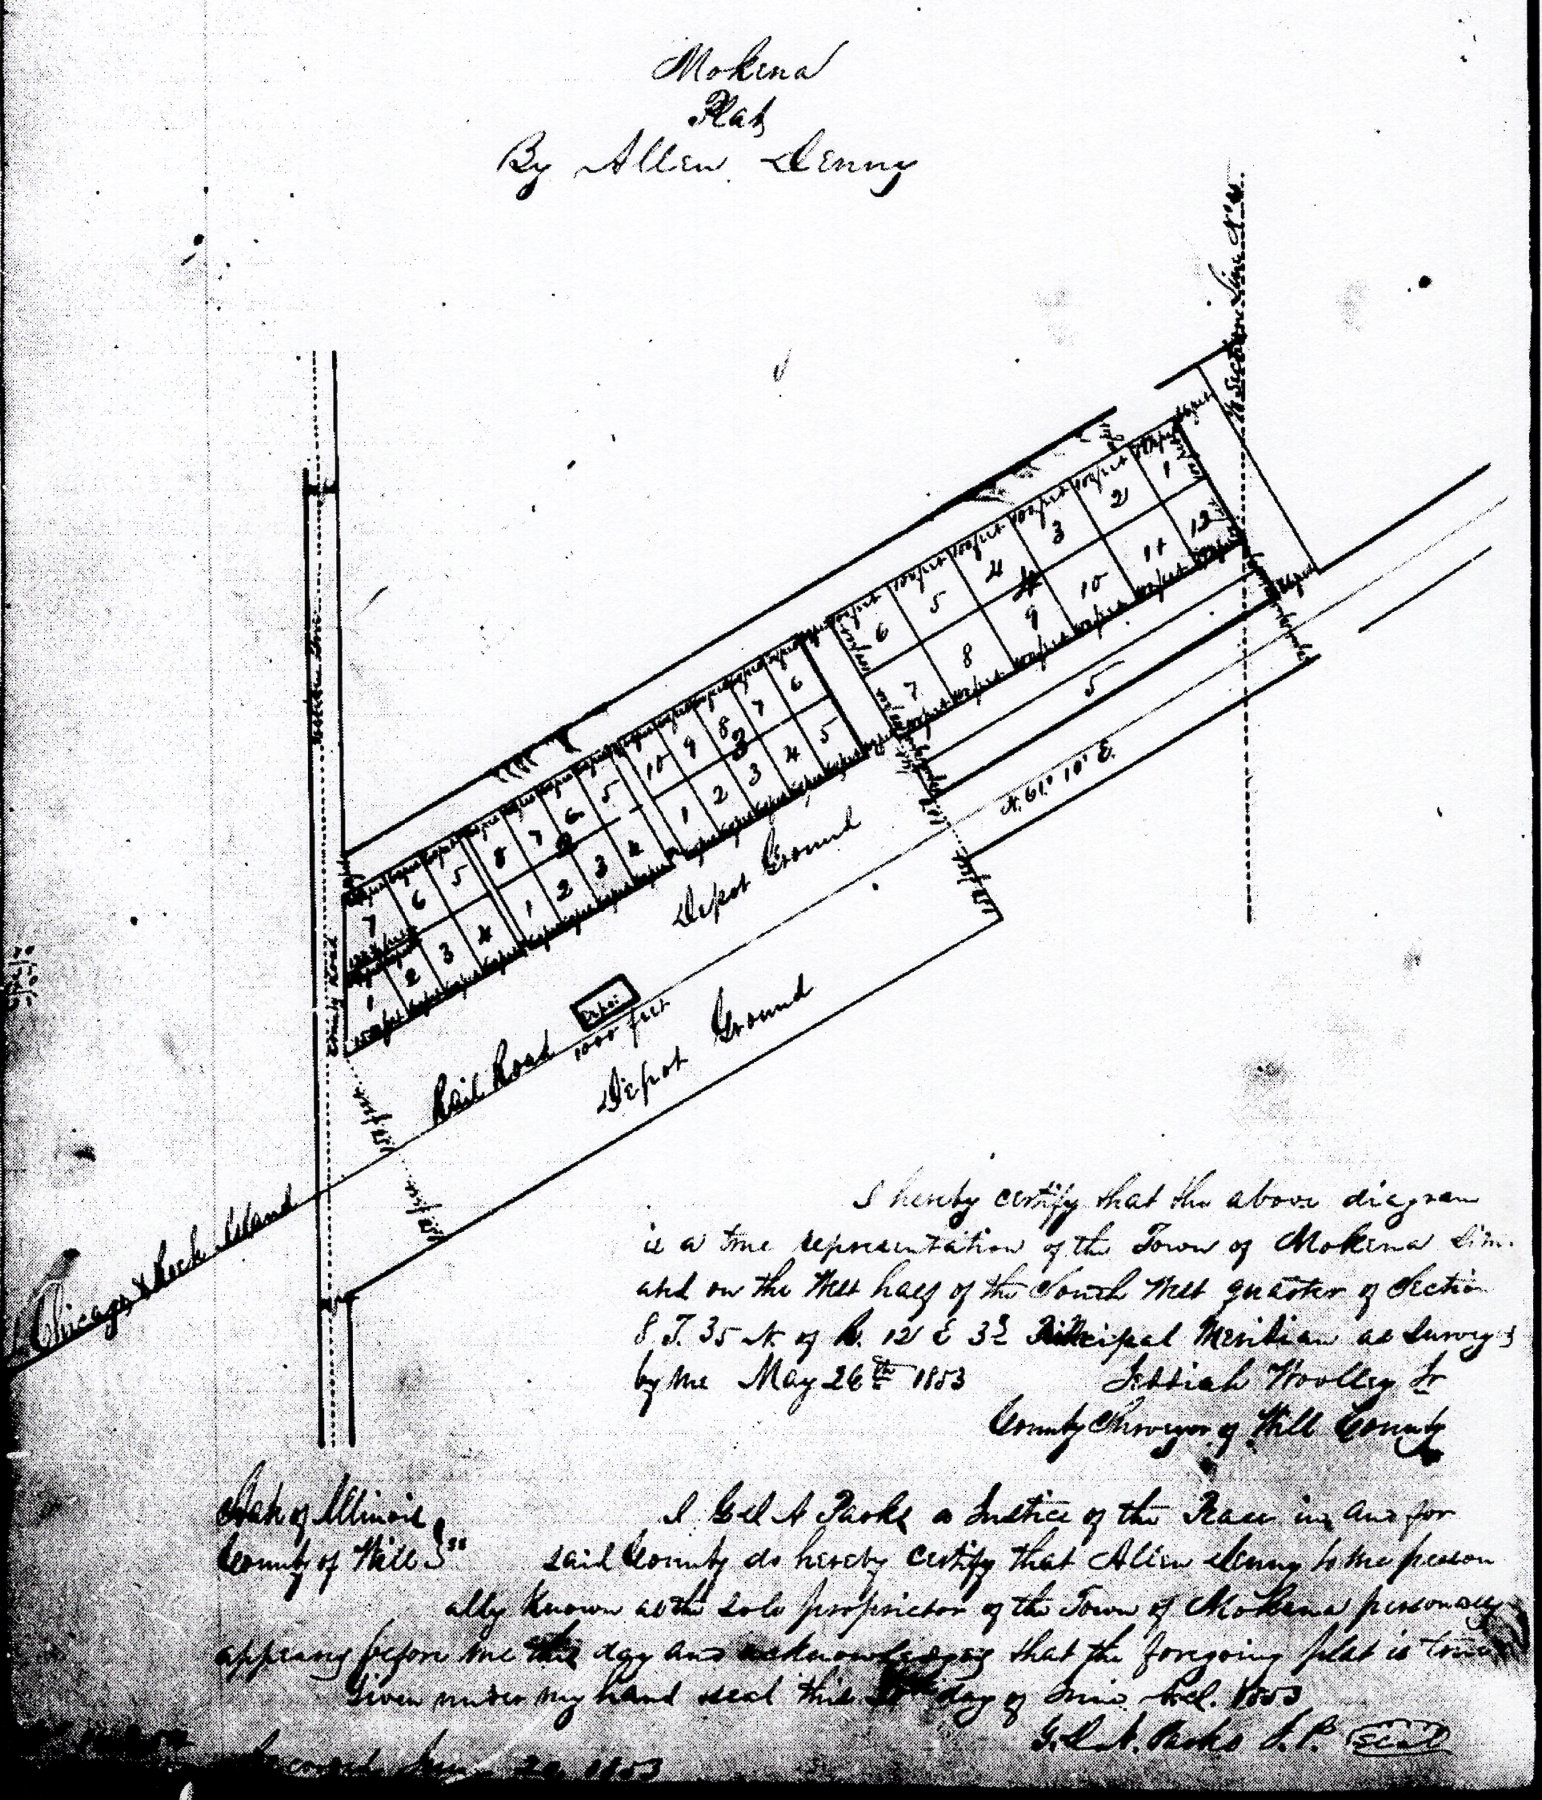 Mokena
Plat
By Allen Denny
Section Line
County Road
4
5
N. 61° 10' E.
7 6 5
1 2 3 4
8 7 6 5
2
1 2 3 4
10 9 8 7 6
3
1 2 3 4 5
6 5 4 3 2 1
7 8 9 10 11 12
Depot Ground
Depot
1000 feet
Rail Road
Depot Ground
Chicago & Rock Island
I hereby certify that the above diagram
is a true representation of the Town of Mokena
and on the West half of the South West quarter of Section
8 T. 35 N. of R. 12 E 3d Principal Meridian as Survey
by me May 26th 1853 Woolley Jr
County Surveyor of Will County
State of Illinois
County of Will ss
I A Parks a Justice of the Peace in and for
said County do hereby certify that Allen Denny to me person
ally Known as the sole proprietor of the Town of Mokena personally
appearing before me this day and acknowledging that the foregoing plat is true
Given under my hand seal this day of 1853
A. Parks J. P. Seal
20 1853